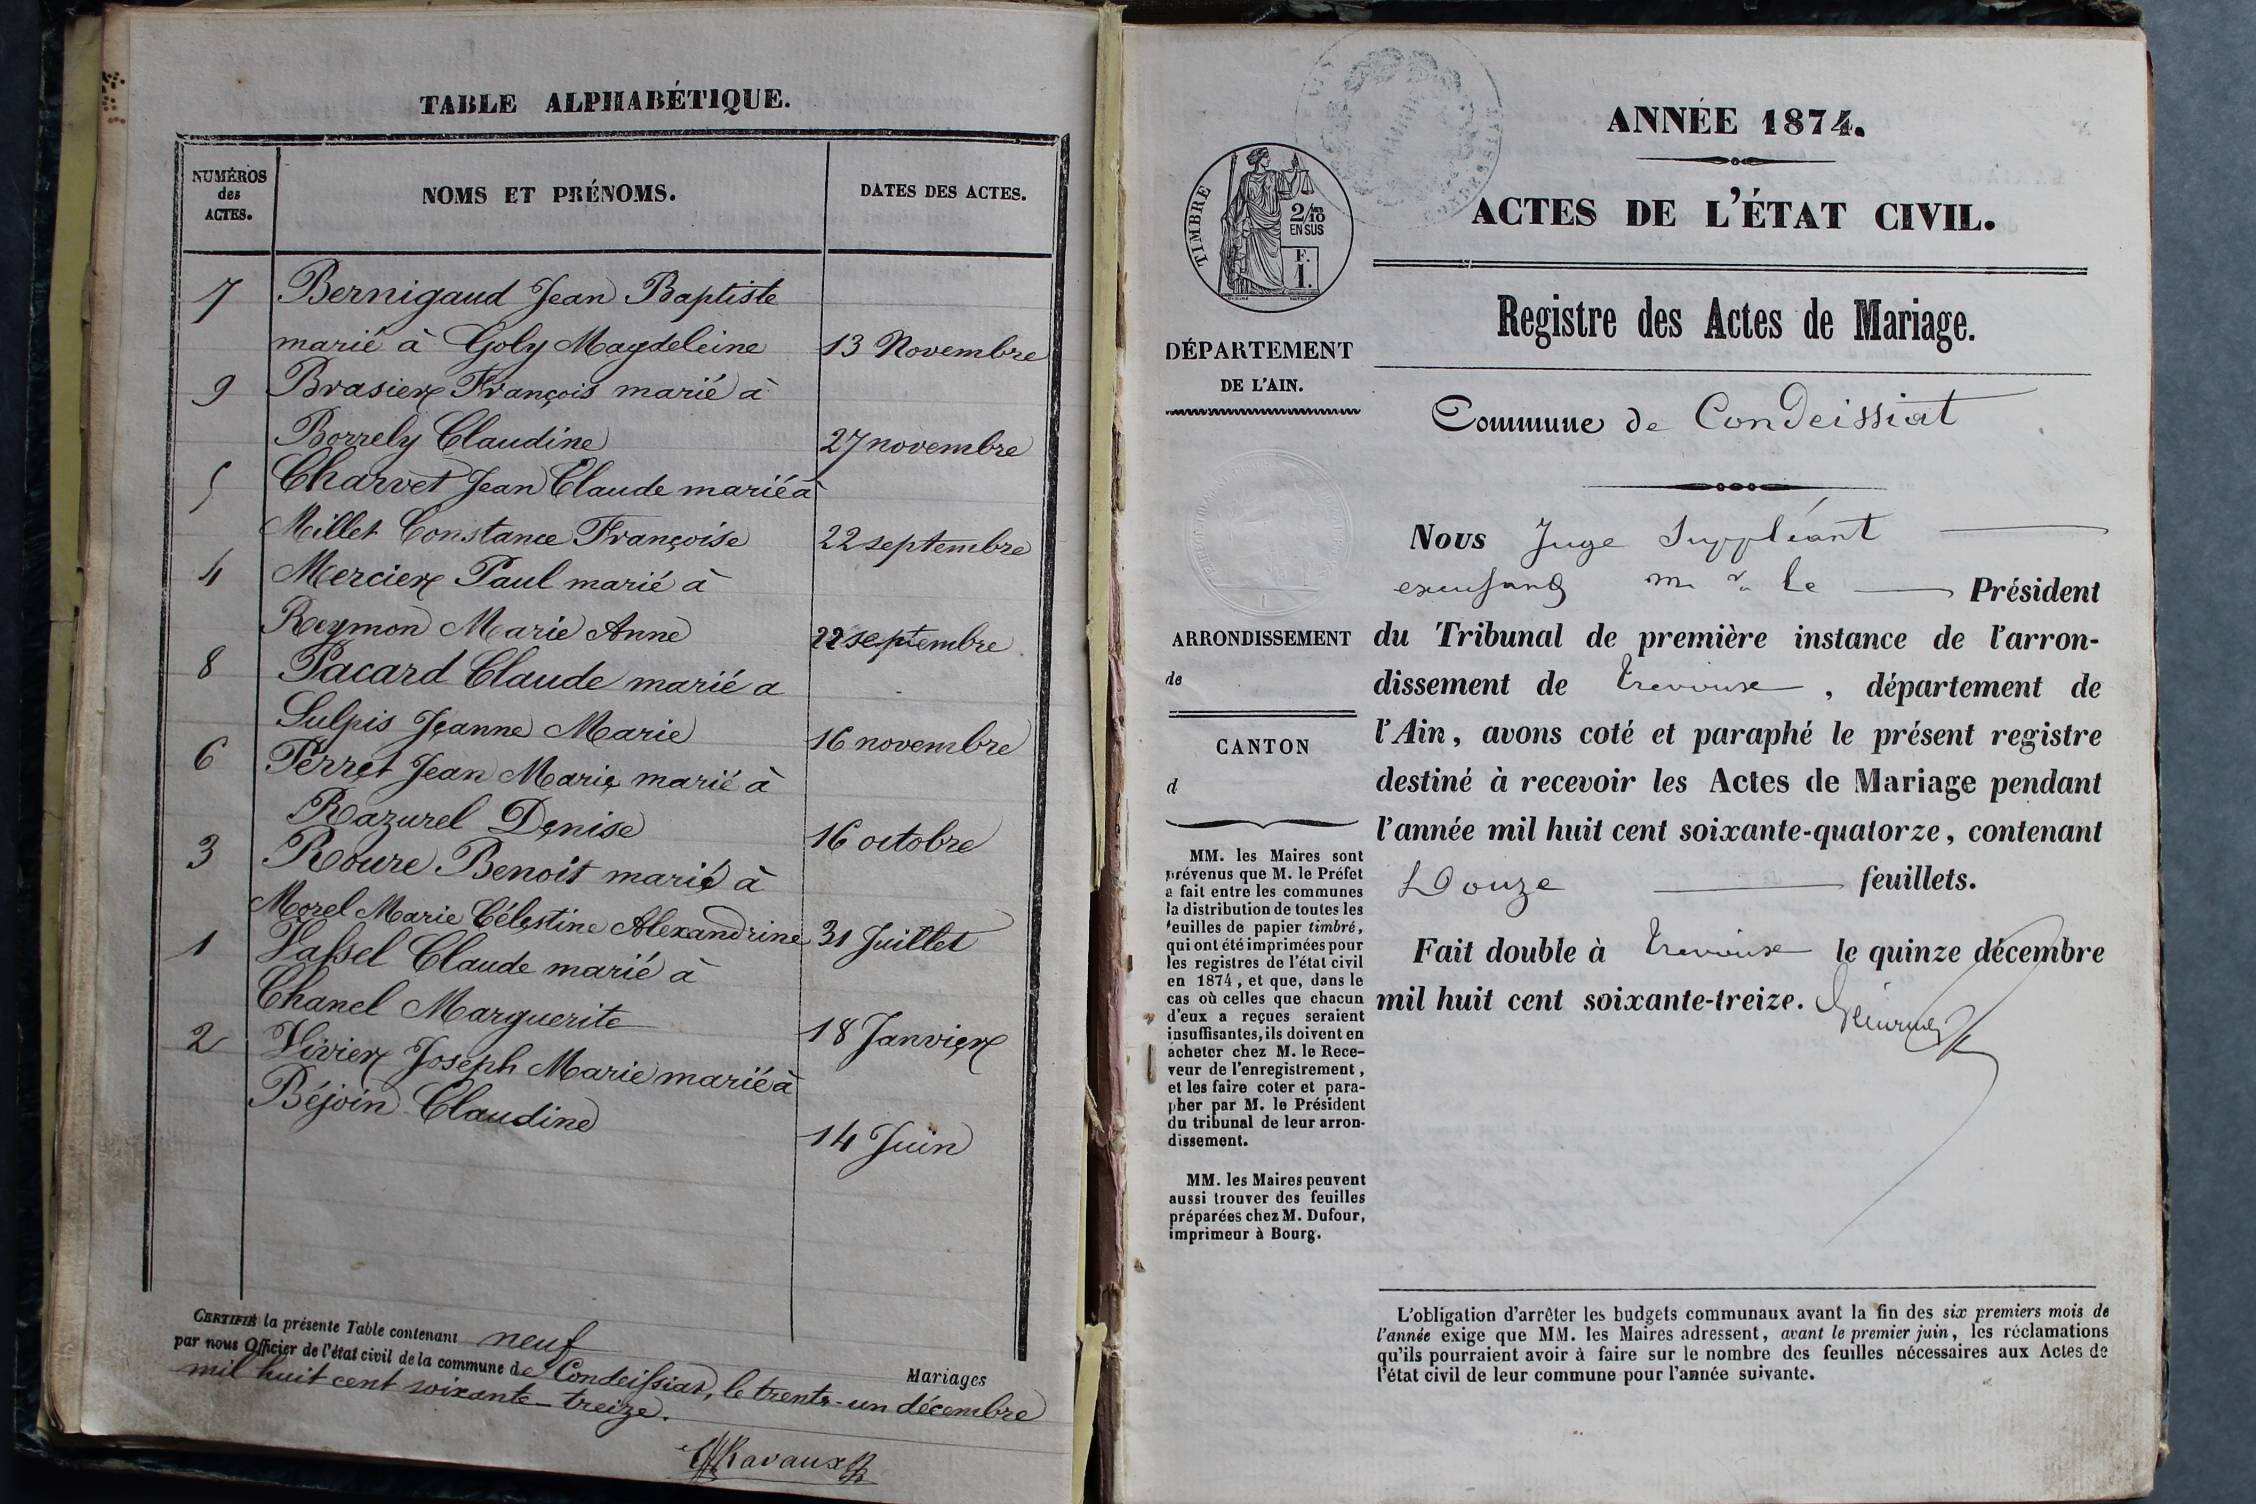 TABLE ALPHABÉTIQUE.
NUMÉROS
des
ACTES.
NOMS ET PRÉNOMS.
DATES DES ACTES.
7 Bernigaud Jean Baptiste
marié à Goly Magdeleine 13 Novembre
9 Brasier François marié à
Borrely Claudine 27 novembre
5 Charvet Jean Claude marié à
Millet Constance Françoise 22 septembre
4 Mercier Paul marié à
Reymon Marie Anne 22 septembre
8 Pacard Claude marié a
Sulpis Jeanne Marie 16 novembre
6 Perret Jean Marie marié à
Razurel Denise 16 octobre
3 Roure Benoit marié à
Morel Marie Célestine Alexandrine 31 Juillet
1 Vassel Claude marié à
Chanel Marguerite 18 Janvier
2 Vivier Joseph Marie marié à
Béjoin Claudine 14 Juin
CERTIFIÉ la présente Table contenant neuf Mariages
par nous Officier de l'état civil de la commune de Condeissiat, le trente-un décembre
mil huit cent soixante-treize.
Ravaux
ANNÉE 1874.
ACTES DE L'ÉTAT CIVIL.
TIMBRE
2/10
EN SUS
F.
1.
Registre des Actes de Mariage.
DÉPARTEMENT
DE L'AIN.
Commune de Condeissiat
ARRONDISSEMENT
de
CANTON
d
MM. les Maires sont
prévenus que M. le Préfet
a fait entre les communes
la distribution de toutes les
feuilles de papier timbré,
qui ont été imprimées pour
les registres de l'état civil
en 1874, et que, dans le
cas où celles que chacun
d'eux a reçues seraient
insuffisantes, ils doivent en
acheter chez M. le Rece-
veur de l'enregistrement,
et les faire coter et para-
pher par M. le Président
du tribunal de leur arron-
dissement.
MM. les Maires peuvent
aussi trouver des feuilles
préparées chez M. Dufour,
imprimeur à Bourg.
Nous Juge Suppléant
le Président
du Tribunal de première instance de l'arron-
dissement de Trevoux, département de
l'Ain, avons coté et paraphé le présent registre
destiné à recevoir les Actes de Mariage pendant
l'année mil huit cent soixante-quatorze, contenant
Douze feuillets.
Fait double à Trevoux le quinze décembre
mil huit cent soixante-treize.
L'obligation d'arrêter les budgets communaux avant la fin des six premiers mois de
l'année exige que MM. les Maires adressent, avant le premier juin, les réclamations
qu'ils pourraient avoir à faire sur le nombre des feuilles nécessaires aux Actes de
l'état civil de leur commune pour l'année suivante.